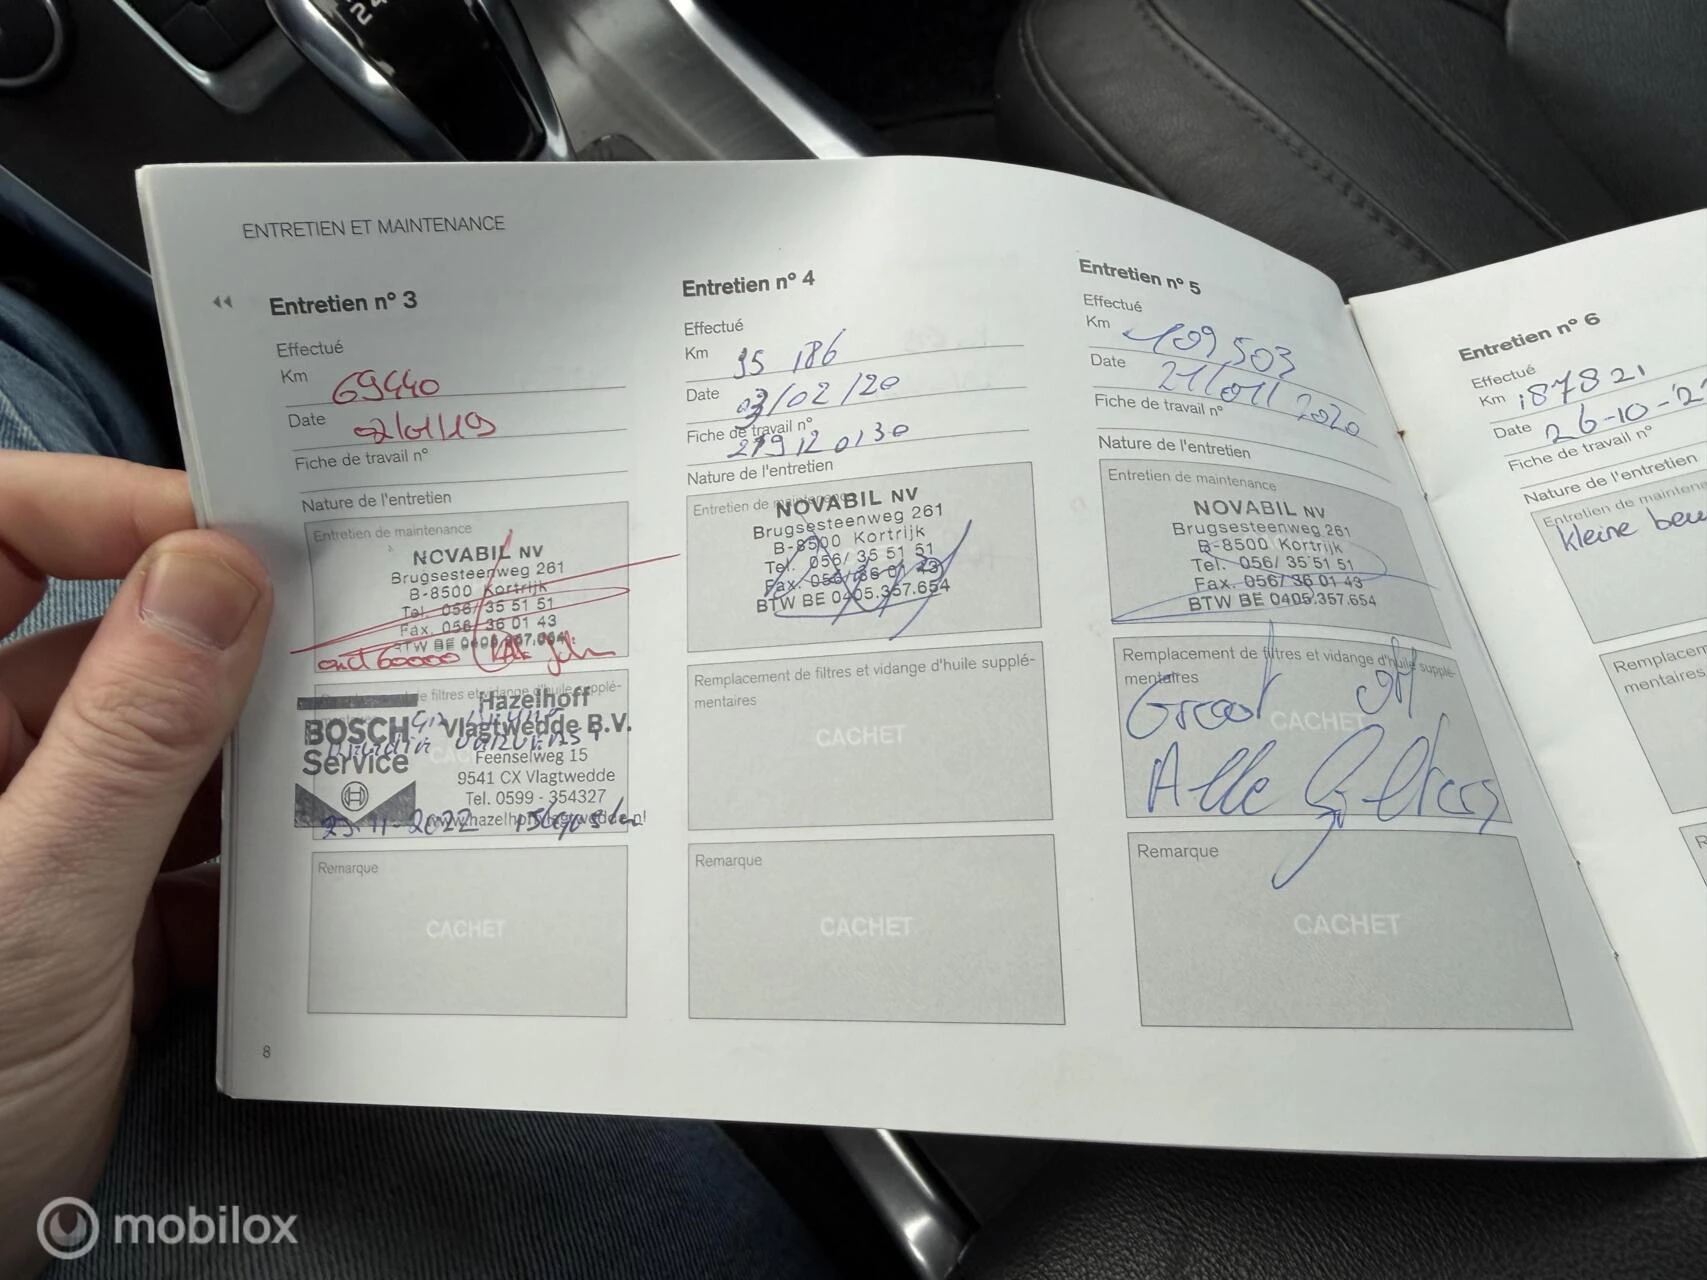 ENTRETIEN ET MAINTENANCE
Entretien n° 3
Effectué
Km 69440
Date 02/01/19
Fiche de travail n°
Nature de l'entretien
Entretien de maintenance
NOVABIL NV
Brugsesteenweg 261
B-8500 Kortrijk
Tel. 056/ 35 51 51
Fax. 056/ 36 01 43
BTW BE 0405.357.654
ond 60000
Remplacement de filtres et vidange d'huile supplé-
mentaires
BOSCH
Service
Hazelhoff
Vlagtwedde B.V.
Feenselweg 15
9541 CX Vlagtwedde
Tel. 0599 - 354327
www.hazelhoffvlagtwedde.nl
11-2022
Remarque
CACHET
8
Entretien n° 4
Effectué
Km 95 186
Date 03/02/20
Fiche de travail n°
Nature de l'entretien
Entretien de maintenance
NOVABIL NV
Brugsesteenweg 261
B-8500 Kortrijk
Tel. 056/ 35 51 51
Fax. 056/ 36 01 43
BTW BE 0405.357.654
Remplacement de filtres et vidange d'huile supplé-
mentaires
CACHET
Remarque
CACHET
Entretien n° 5
Effectué
Km 109 503
Date 21/01/2020
Fiche de travail n°
Nature de l'entretien
Entretien de maintenance
NOVABIL NV
Brugsesteenweg 261
B-8500 Kortrijk
Tel. 056/ 35 51 51
Fax. 056/ 36 01 43
BTW BE 0405.357.654
Remplacement de filtres et vidange d'huile supplé-
mentaires
CACHET
Groot
Alle Filters
Remarque
CACHET
Entretien n° 6
Effectué
Km 187821
Date 26-10-2
Fiche de travail n°
Nature de l'entretien
Entretien de maintenance
kleine beu
Remplacem
mentaires
mobilox